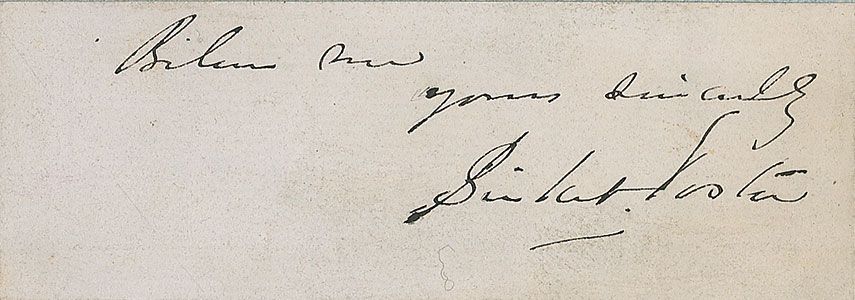 Believe me
yours sincerely
Birket Foster